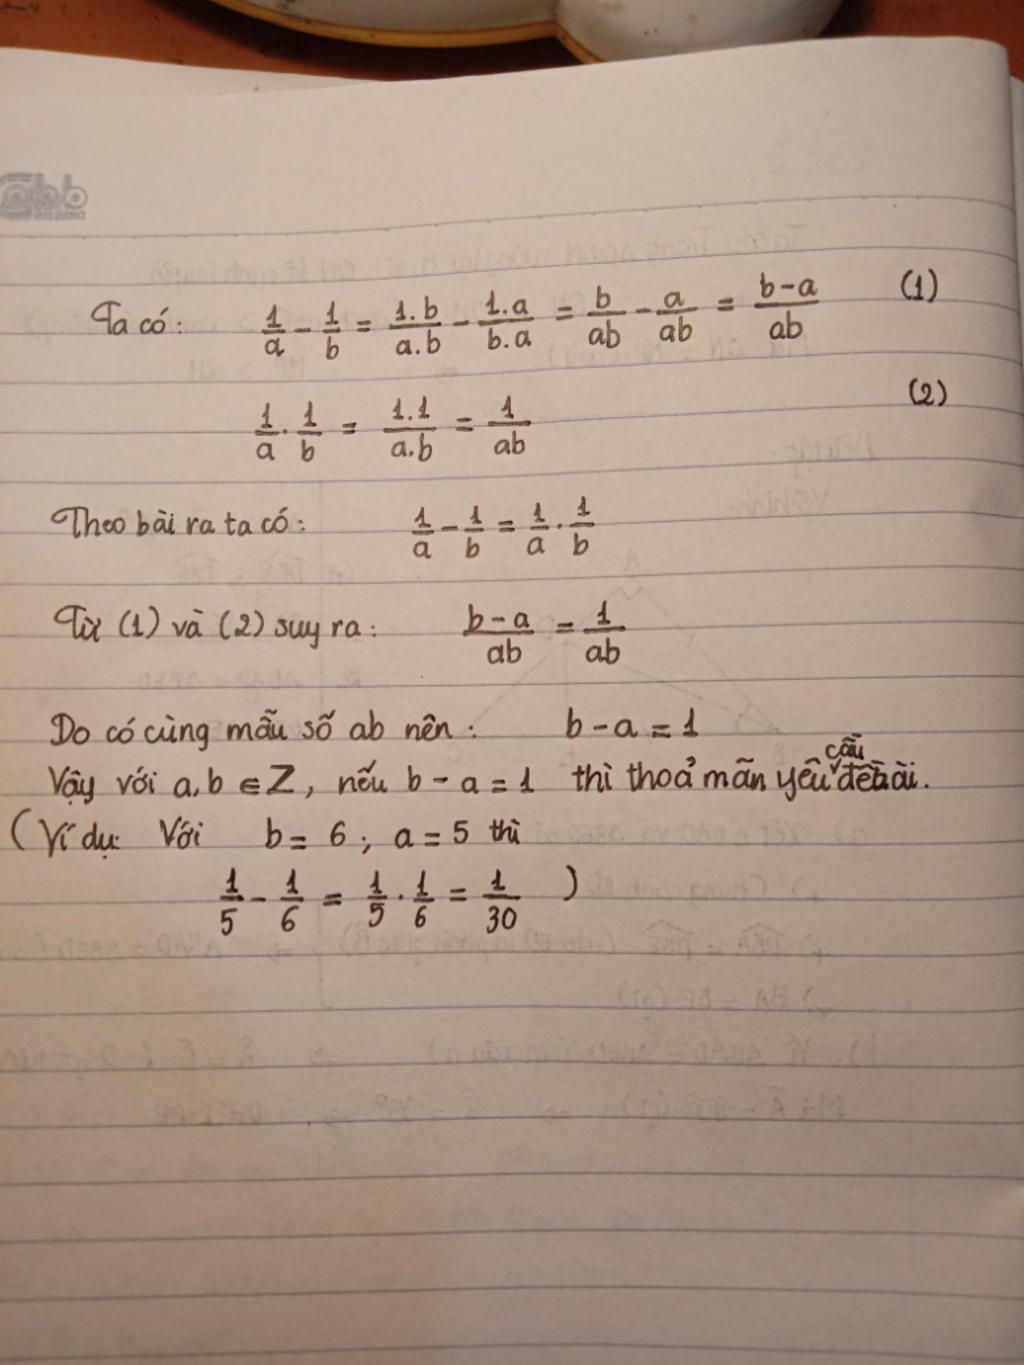 Ta có: 1/a - 1/b = 1.b/a.b - 1.a/b.a = b/ab - a/ab = b-a/ab (1)
1/a . 1/b = 1.1/a.b = 1/ab (2)
Theo bài ra ta có: 1/a - 1/b = 1/a . 1/b
Từ (1) và (2) suy ra: b-a/ab = 1/ab
Do có cùng mẫu số ab nên: b-a = 1
Vậy với a,b ∈ Z, nếu b-a = 1 thì thoả mãn yêu cầu đề bài.
(Ví dụ: Với b = 6; a = 5 thì
1/5 - 1/6 = 1/5 . 1/6 = 1/30 )